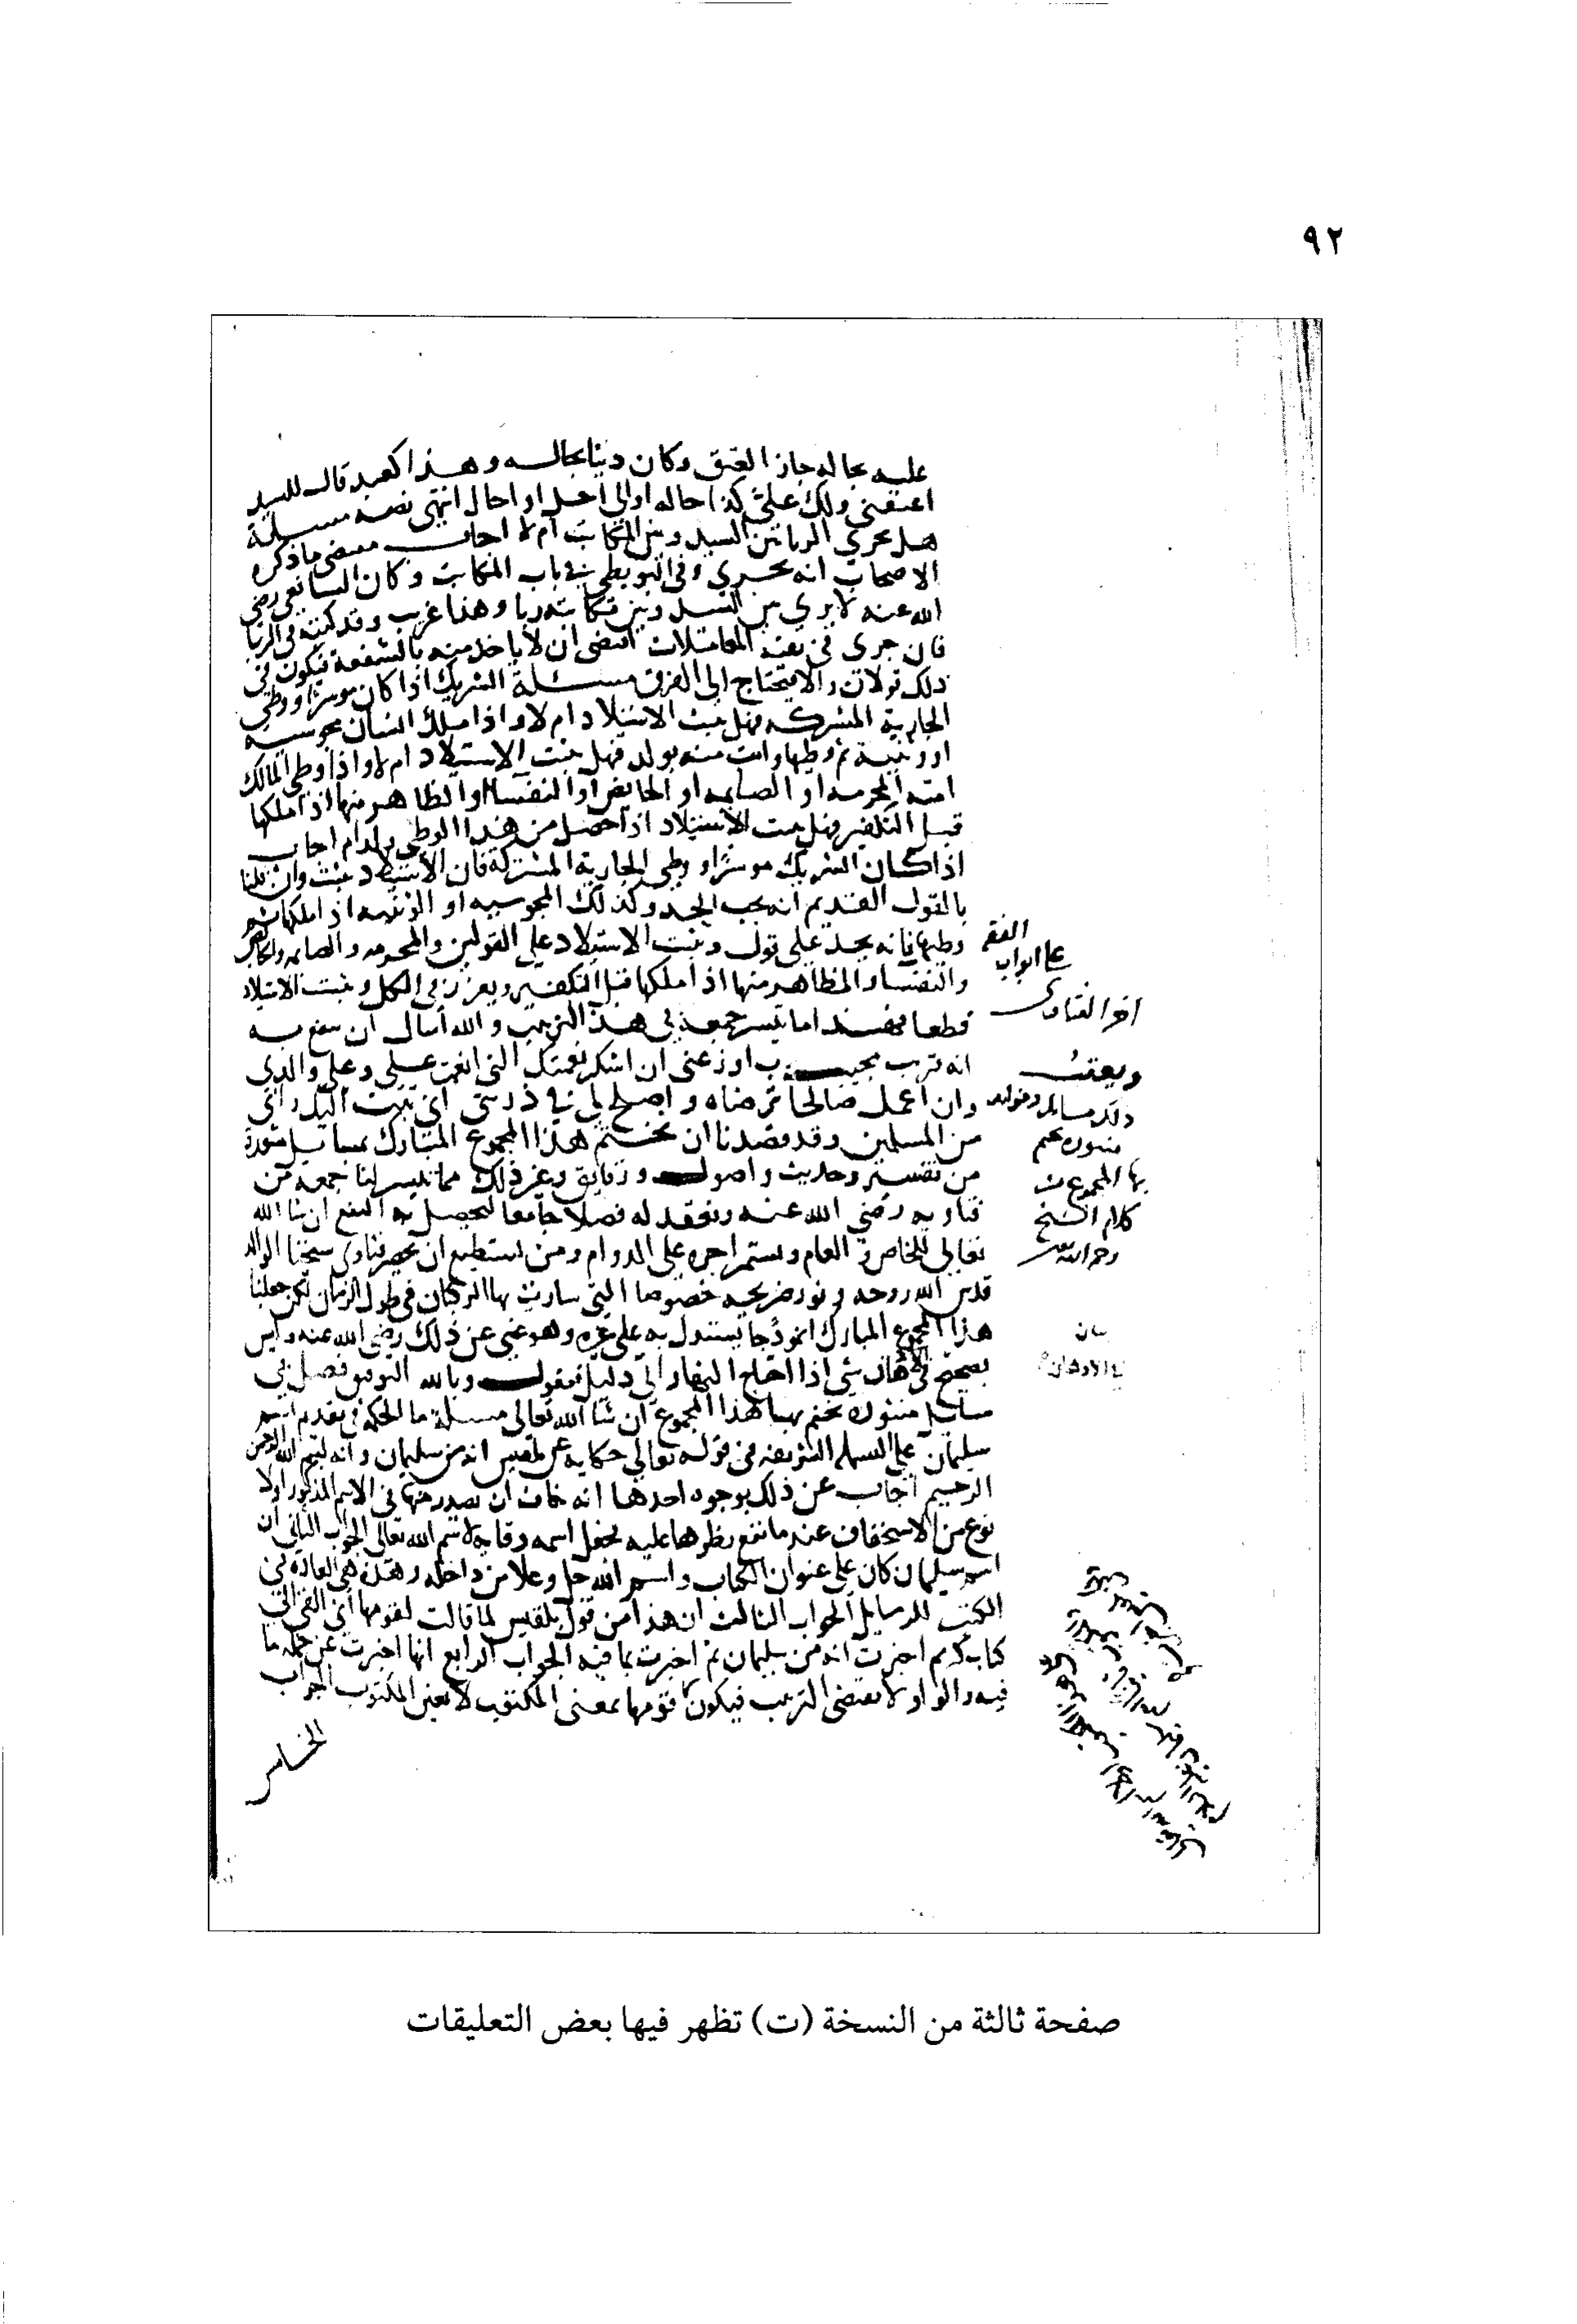 ٩٢
عليه بحاله جاز العتق وكان دينا بحاله وهذا كعبد قال للسيد
اعتقني ولك علي كذا حاله او الى اجل او احال انتهى نصه مسئلة
هل يجري الربا بين السيد وبين المكاتب ام لا اجاب مقتضى ما ذكره
الاصحاب انه يجري وفي البويطي في باب المكاتب وكان الشافعي رضي
الله عنه لا يرى بين السيد وبين مكاتبه ربا وهذا غريب وقد كتبته في الربا
فان جرى في بقية المعاملات اقتضى ان لا ياخذ منه بالشفعة فيكون في
ذلك قولان والا فيحتاج الى الفرق مسئلة الشريك اذا كان موسرا ووطي
الجارية المشتركه فهل يثبت الاستيلاد ام لا واذا ملك انسان مجوسيه
او وثنية ثم وطيها واتت منه بولد فهل يثبت الاستيلاد ام لا واذا وطي المالك
امته المحرمه او الصايمه او الحايض او النفسا او المظاهر منها اذا ملكها
قبل التكفير فهل يثبت الاستيلاد اذا حصل من هذا الوطي ولد ام اجاب
اذا كان الشريك موسرا ووطي الجارية المشتركة فان الاستيلاد يثبت وان قلنا
بالقول القديم انه يجب الحد وكذلك المجوسيه او الوثنيه اذا ملكها ثم
وطيها فانه يحد على قول ويثبت الاستيلاد على القولين والمحرمه والصايمه والحايض
والنفسا والمظاهر منها اذا ملكها قبل التكفير ويعزر في الكل ويثبت الاستيلاد
قطعا فهذا ما تيسر جمعه في هذا الترتيب والله اسال ان ينفع به
انه قريب مجيب رب اوزعني ان اشكر نعمتك التي انعمت علي وعلى والدي
وان اعمل صالحا ترضاه واصلح لي في ذريتي اني تبت اليك واني
من المسلمين وقد قصدنا ان نختم هذا المجموع المبارك بمسايل منثورة
من تفسير وحديث واصول ورقايق وغير ذلك مما تيسر لنا جمعه من
فتاويه رضي الله عنه ونعقد له فصلا جامعا ليحصل به النفع ان شا الله
تعالى للخاص والعام ويستمر اجره على الدوام ومن يستطيع ان يحصر فتاوى شيخنا الوالد
قدس الله روحه ونور ضريحه خصوصا التي سارت بها الركبان في طول الزمان لكن جعلنا
هذا المجموع المبارك انموذجا يستدل به على غيره وهو غني عن ذلك رضي الله عنه وليس
يصح في الاذهان شي اذا احتاج النهار الى دليل فنقول وبالله التوفيق فصل في
مسايل منثوره نختم بها هذا المجموع ان شا الله تعالى مسئلة ما الحكمة في تقديم اسم
سليمان على البسملة الشريفه في قوله تعالى حكاية عن بلقيس انه من سليمان وانه بسم الله الرحمن
الرحيم اجاب عن ذلك بوجوه احدها انه خاف ان يصدر منها في الاسم المذكور اولا
نوع من الاستخفاف عند ما يقع نظرها عليه فجعل اسمه وقاية لاسم الله تعالى الجواب الثاني ان
اسم سليمان كان على عنوان الكتاب واسم الله جل وعلا من داخله وهذه هي العادة في
الكتب للرسايل الجواب الثالث ان هذا من قول بلقيس لما قالت لقومها اني القي الي
كتاب كريم اخبرت انه من سليمان ثم اخبرت بما فيه الجواب الرابع انها اخبرت عن جملة ما
فيه والواو لا تقتضي الترتيب فيكون قومها بمعنى المكتوب لا بعين المكتوب الجواب
الخامس
الفقه
على ابواب
اخر الفتاوى
ويعقب
ذلك مسايل وفوايد
منثوره يختم
بها المجموع من
كلام الشيخ
رحمه الله
بيان
في الاذهان
صفحة ثالثة من النسخة (ت) تظهر فيها بعض التعليقات